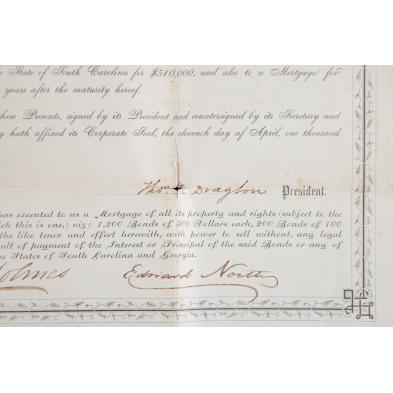 State of South Carolina for $510,000, and also to a Mortgage for
years after the maturity hereof.
hese Presents, signed by its President and countersigned by its Secretary and
y hath affixed its Corporate Seal, the eleventh day of April, one thousand
Thos Drayton President.
has executed to us a Mortgage of all its property and rights (subject to the
hich this is one,) viz: 1,200 Bonds of 500 Dollars each, 200 Bonds of 100
the like tenor and effect herewith, with power to sell without, any legal
ault of payment of the Interest or Principal of the said Bonds or any of
he States of South Carolina and Georgia.
olmes Edward North